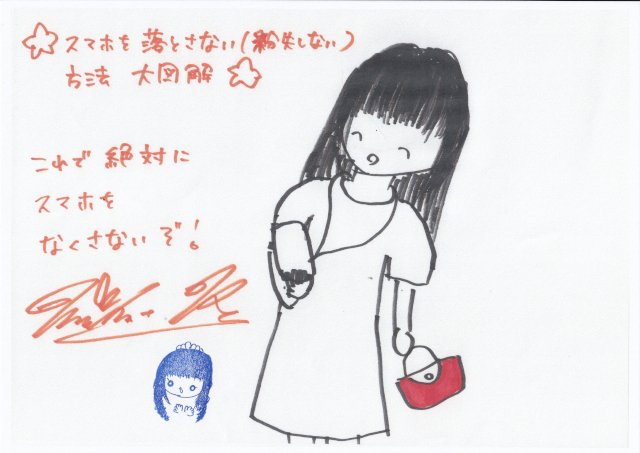 ☆スマホを落とさない(紛失しない)
方法 大図解☆
これで絶対に
スマホを
なくさないぞ!